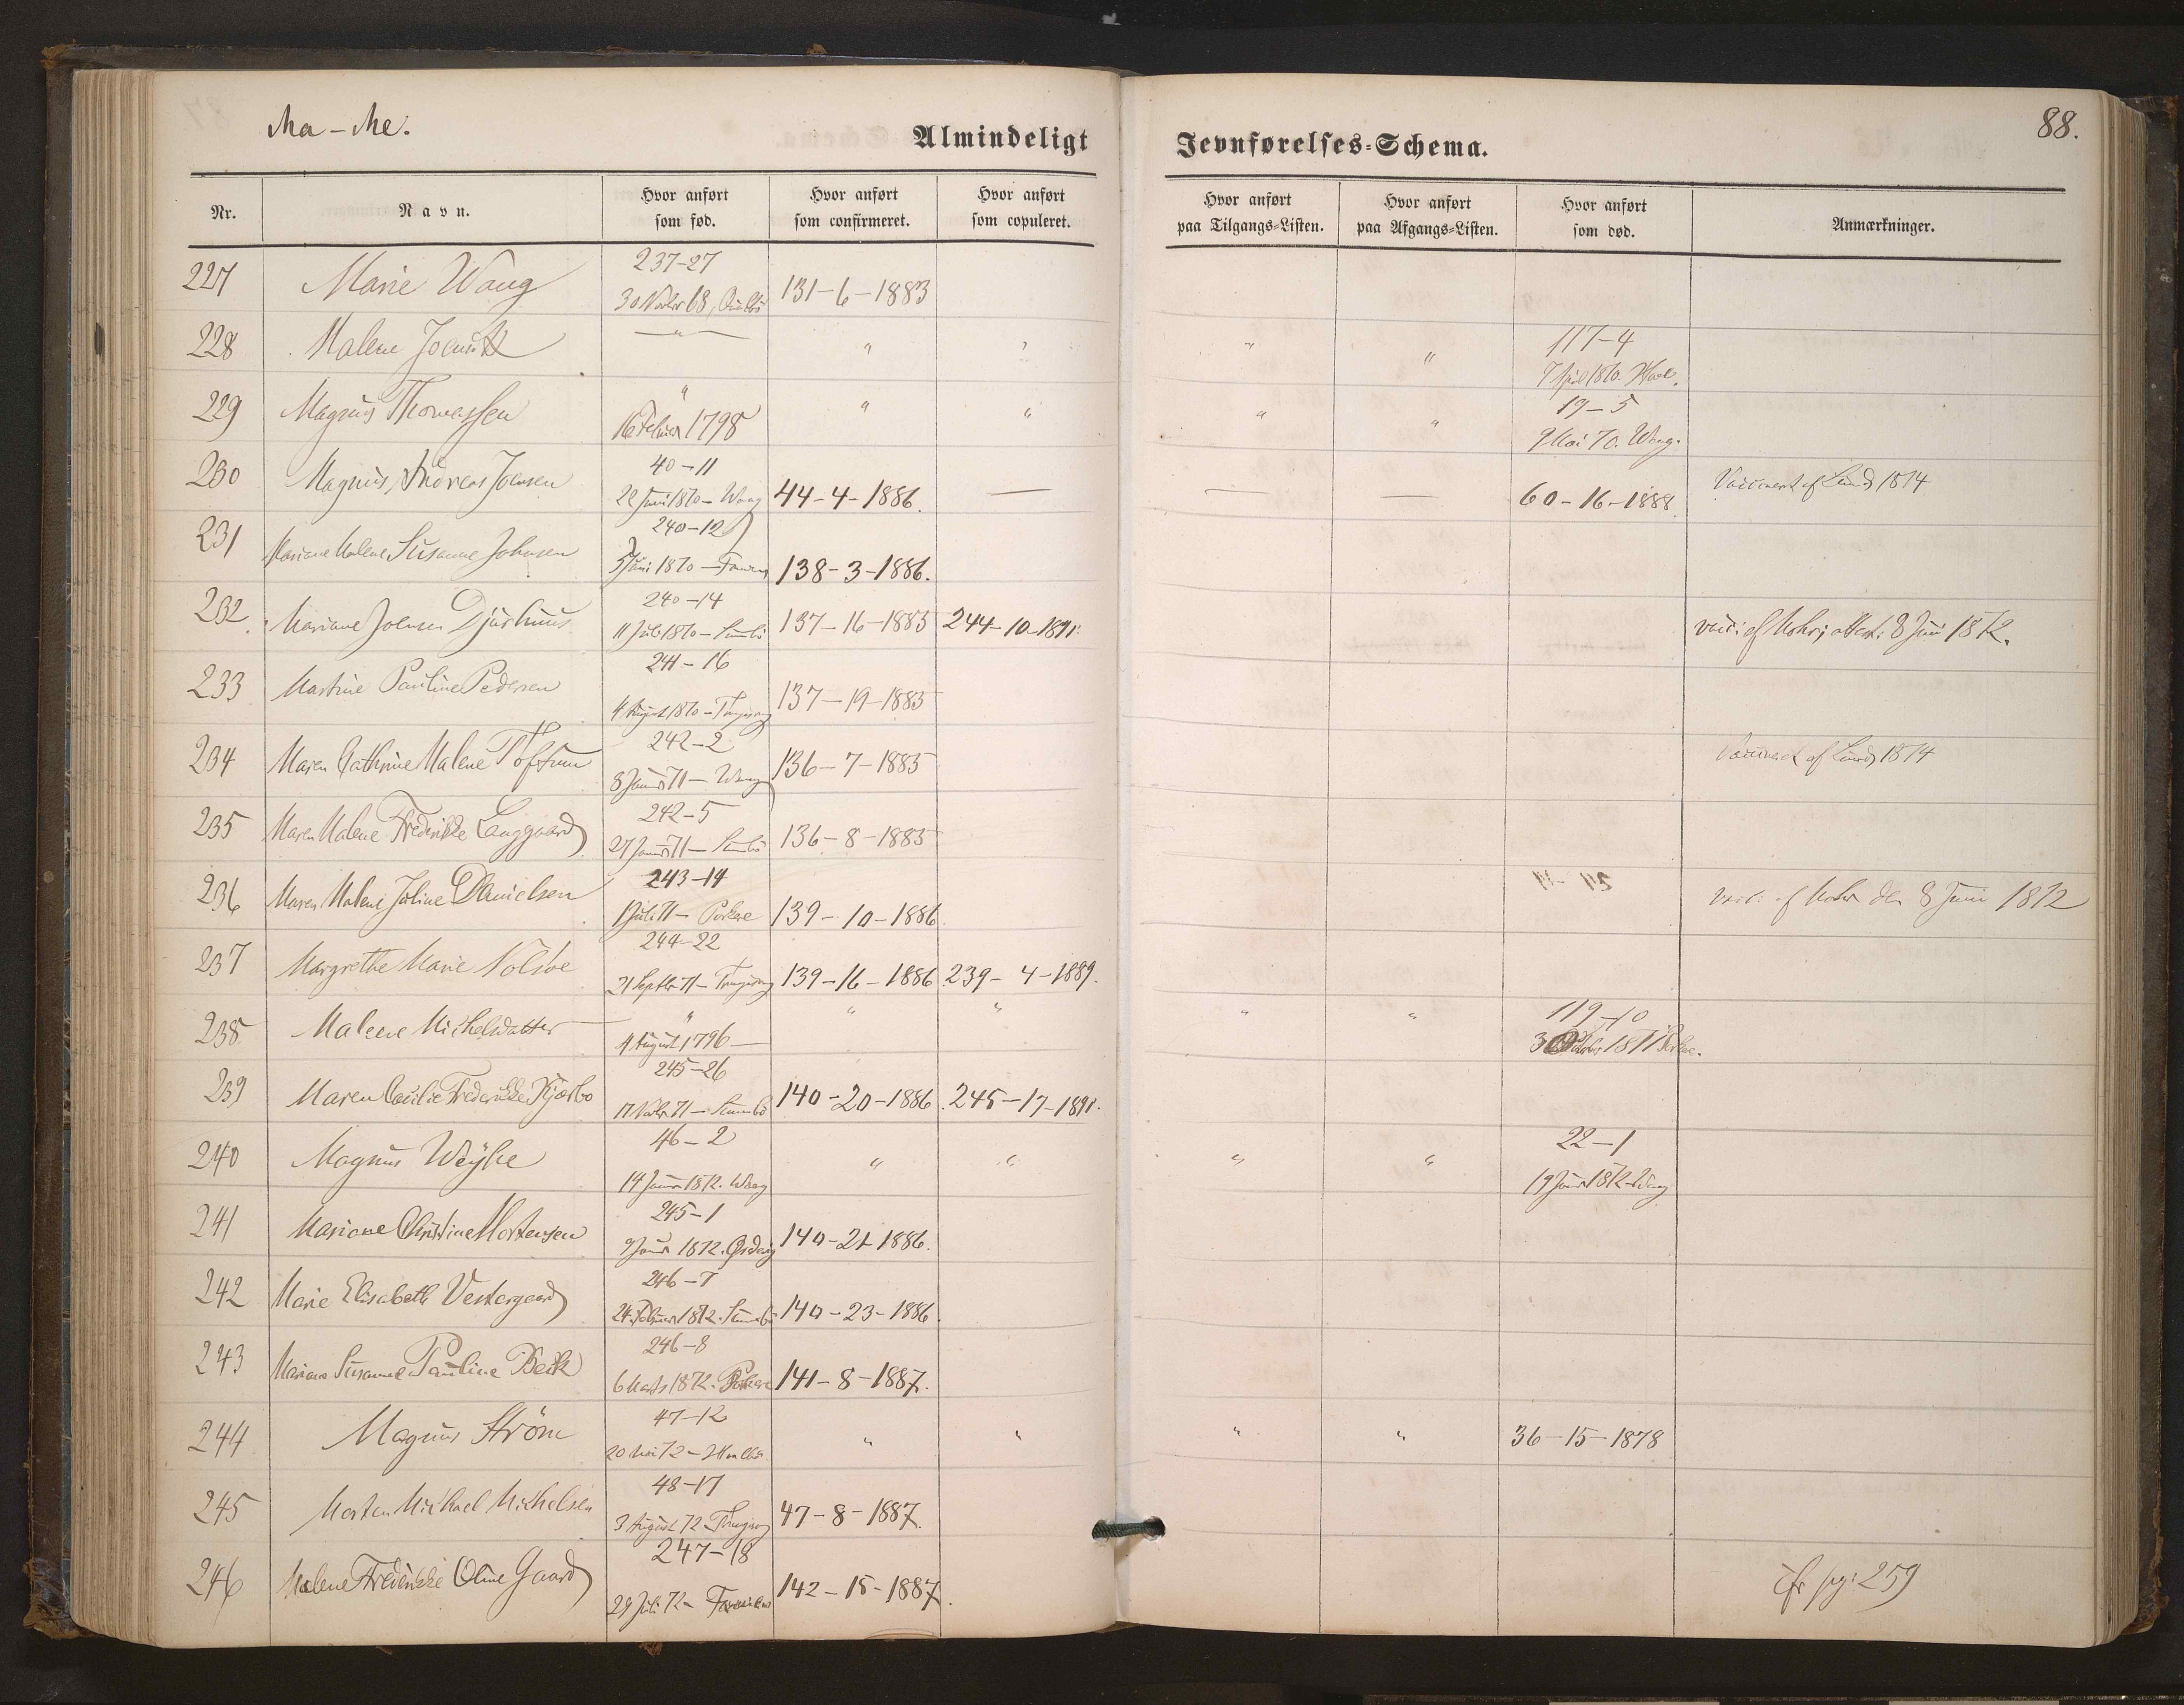 Ma-Me.
88.
Almindeligt Jevnførelses-Schema.
Nr. Navn. Hvor anført som fød. Hvor anført som confirmeret. Hvor anført som copuleret. Hvor anført paa Tilgangs-Listen. Hvor anført paa Afgangs-Listen. Hvor anført som død. Anmærkninger.
237-27
227 Marie Waag 131-6-1883
228 Malene " " " " 117-4
7 April 1870.
229 Magnus Thomassen " " " " " 19-5
16 Februar 1798 9 Mai 70. Waag.
230 Magnus Andreas Joensen 40-11 44-4-1886. — — — 60-16-1888. af Lund 1874
22 Juni 1870 - Waag
231 Mariane Malene Susanne Johnsen 240-12 138-3-1886.
5 Juni 1870 -
232 Mariane Joensen Djurhuus 240-14 137-16-1885 244-10-1891. af 8 Juni 1872.
11 Juli 1870 - Sumbö
233 Martine Pauline Pedersen 241-16 137-19-1885
4 August 1870 -
234 Maren Cathrine Malene Toftum 242-2 136-7-1885 af Lund 1874
8 Januar 71 - Waag
235 Maren Malene Fredrikke Langgaard 242-5 136-8-1885
27 Januar 71 - Sumbö
236 Maren Malene Joline Danielsen 243-14 139-10-1886. af den 8 Juni 1872
Juli 71 - Porkere
237 Margrethe Marie Nolsöe 244-22 139-16-1886 239-4-1889.
21 Septbr 71 -
238 Malene Michelsdatter " " " " " 119-10
4 August 1796 -
239 Maren Cecilie Fredrikke Kjærbo 245-26 140-20-1886. 245-17-1891.
17 Novbr 71 - Sumbö
240 Magnus Weyhe 46-2 " " " " 22-1
14 Januar 1872. Waag 19 Januar 1872 - Waag
241 Mariane Christine Mortensen 245-1 140-21-1886.
9 Januar 1872.
242 Marie Elisabeth Vestergaard 246-7 140-23-1886.
24 Februar 1872. Sumbö
243 Mariane Susanne Pauline Beck 246-8 141-8-1887.
6 Marts 1872. Porkere
244 Magnus Ström 47-12 " " " " 36-15-1878
20 Mai 72 -
245 Morten Michael Michelsen 48-17 47-8-1887.
3 August 72 -
246 Malene Fredrikke Oline Gaard 247-18 142-15-1887. cfr pg: 259
29 Juli 72 -